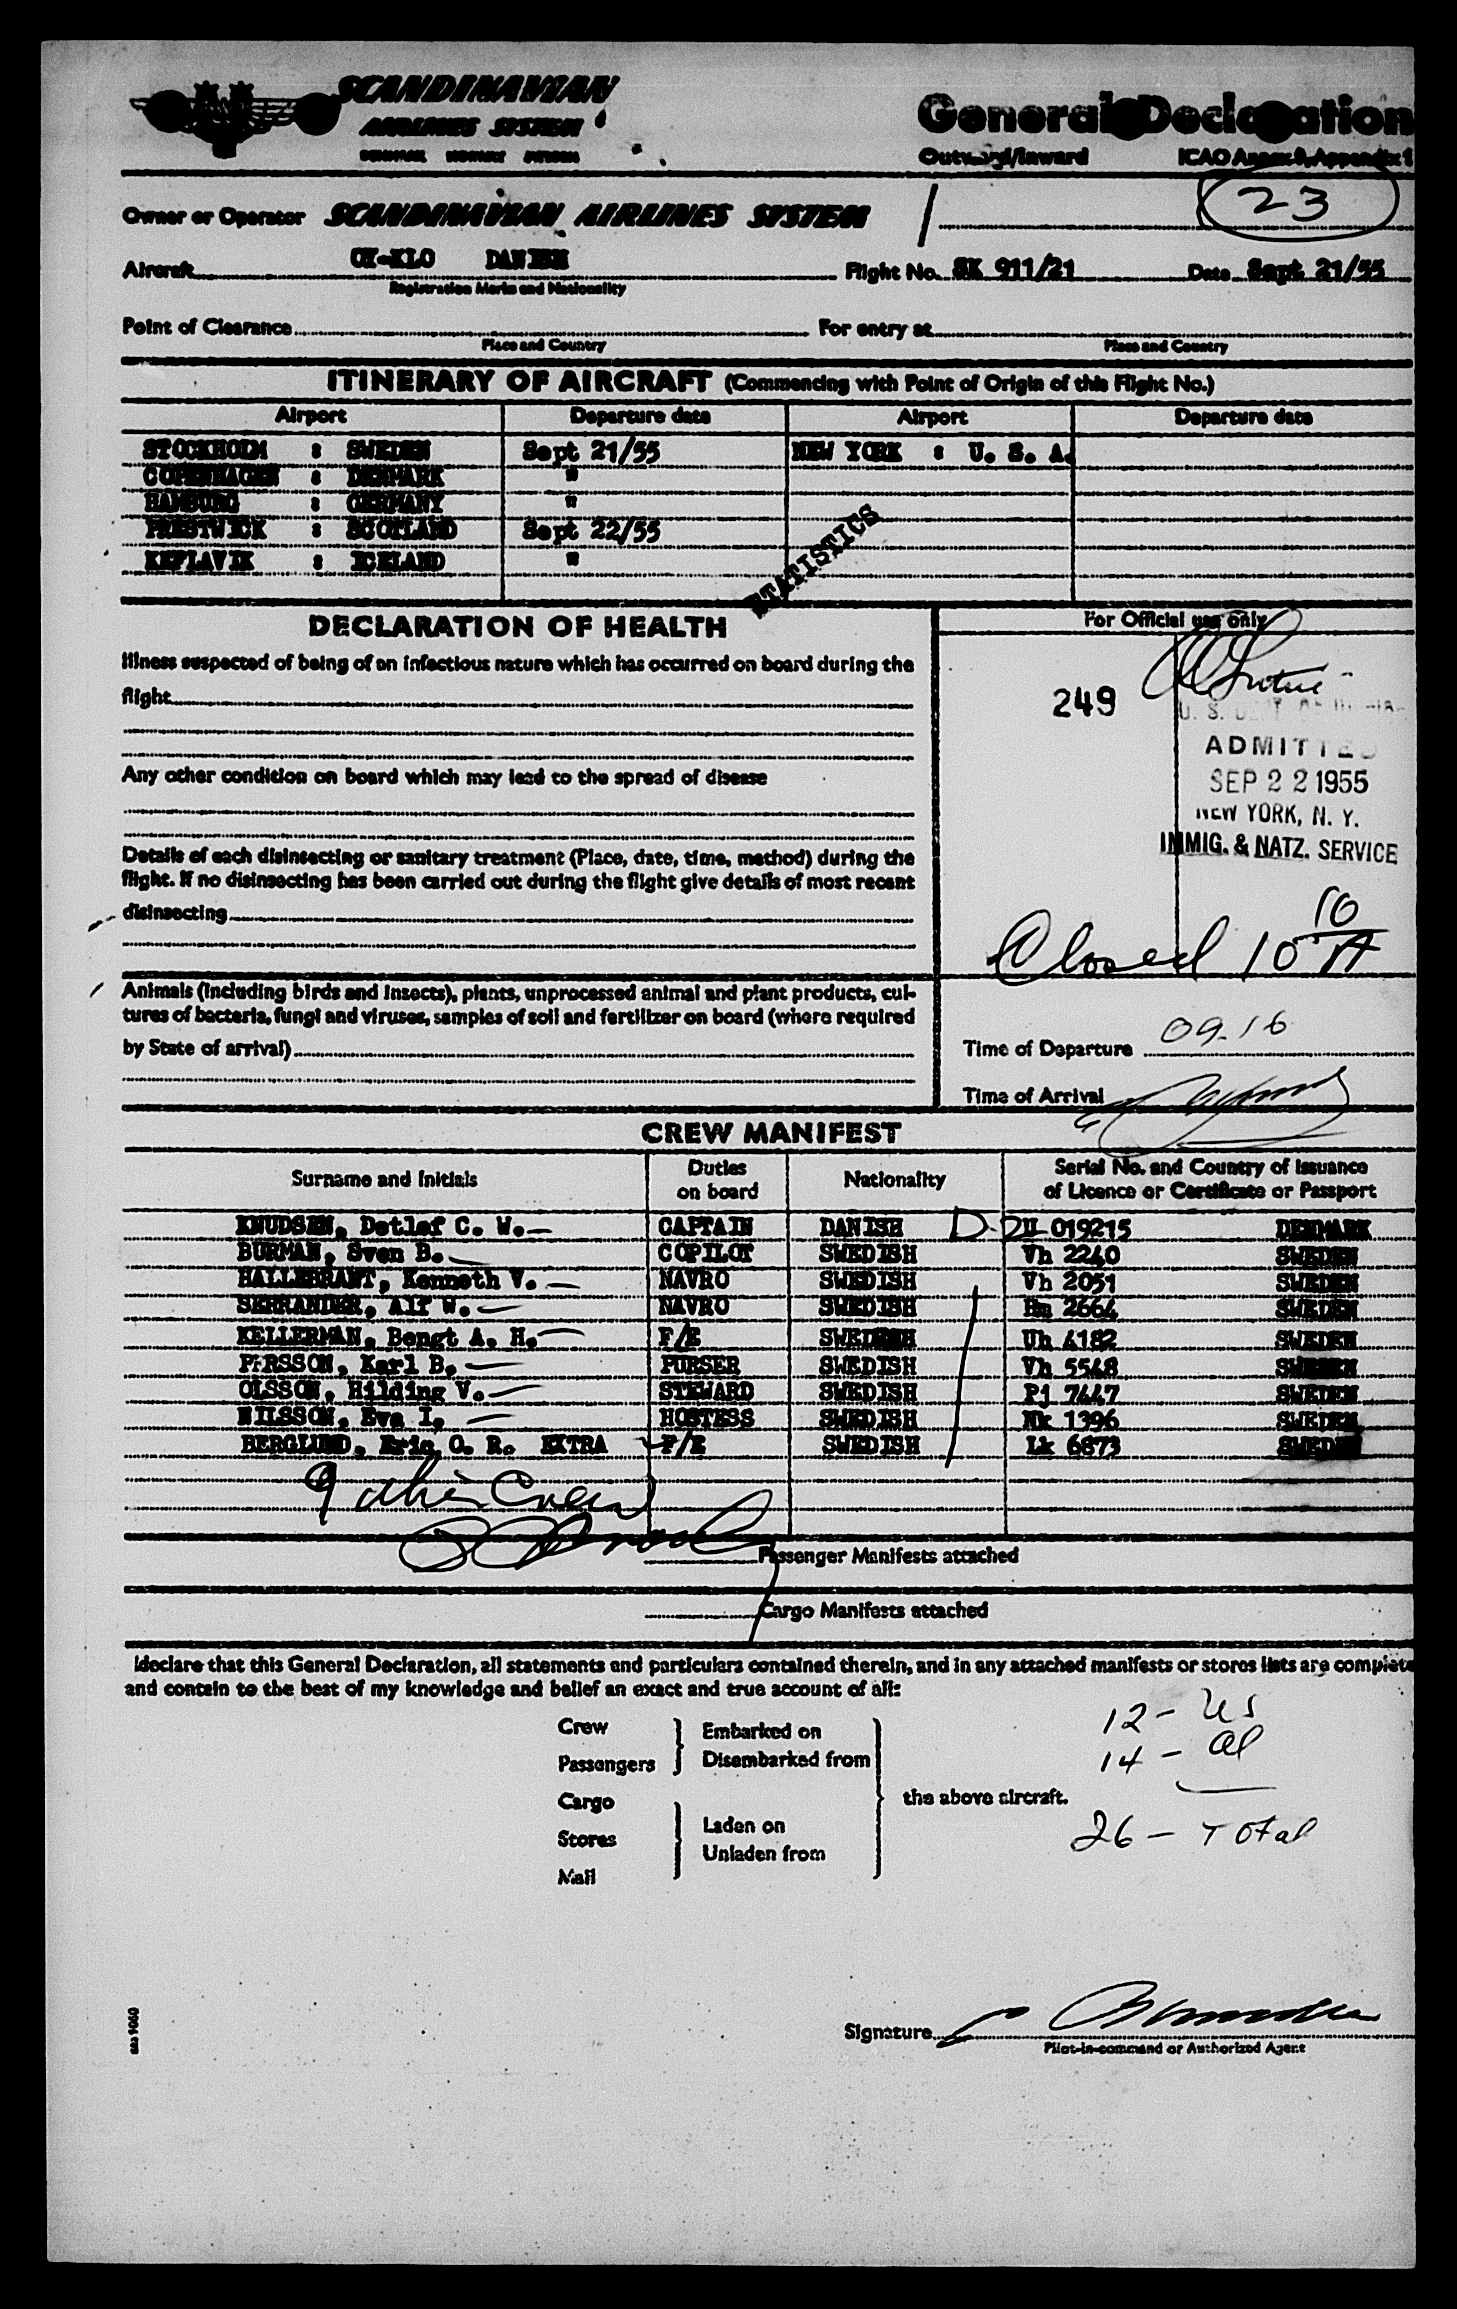 SCANDINAVIAN
AIRLINES SYSTEM
DENMARK NORWAY SWEDEN
General Declaration
Outward/Inward ICAO Annex 9, Appendix 1
23
Owner or Operator SCANDINAVIAN AIRLINES SYSTEM
Aircraft OY-KLO DANISH Flight No. SK 911/21 Date Sept 21/55
Registration Marks and Nationality
Point of Clearance For entry at
Place and Country Place and Country
ITINERARY OF AIRCRAFT (Commencing with Point of Origin of this Flight No.)
Airport Departure date Airport Departure date
STOCKHOLM : SWEDEN Sept 21/55 NEW YORK : U. S. A.
COPENHAGEN : DENMARK "
HAMBURG : GERMANY "
PRESTWICK : SCOTLAND Sept 22/55
KEFLAVIK : ICELAND "
STATISTICS
DECLARATION OF HEALTH
For Official use only
Illness suspected of being of an infectious nature which has occurred on board during the
flight
249
U. S. DEPT
ADMITTED
SEP 22 1955
NEW YORK, N. Y.
IMMIG. & NATZ. SERVICE
Any other condition on board which may lead to the spread of disease
Details of each disinsecting or sanitary treatment (Place, date, time, method) during the
flight. If no disinsecting has been carried out during the flight give details of most recent
disinsecting
Closed 10 10 A
Animals (including birds and insects), plants, unprocessed animal and plant products, cul-
tures of bacteria, fungi and viruses, samples of soil and fertilizer on board (where required
by State of arrival)
Time of Departure 09.16
Time of Arrival
CREW MANIFEST
Surname and Initials Duties on board Nationality Serial No. and Country of Issuance of Licence or Certificate or Passport
KNUDSEN, Detlef C. W. CAPTAIN DANISH D-2U 019215 DENMARK
BURMAN, Sven B. COPILOT SWEDISH Vh 2240 SWEDEN
HALLEBRANT, Kenneth V. NAVRO SWEDISH Vh 2051 SWEDEN
SERRANDER, Alf W. NAVRO SWEDISH 2664 SWEDEN
KELLERMAN, Bengt A. H. F/E SWEDISH Uh 4182 SWEDEN
PERSSON, Karl B. PURSER SWEDISH Vh 5548 SWEDEN
OLSSON, Hilding V. STEWARD SWEDISH Pj 7447 SWEDEN
NILSSON, Eva I. HOSTESS SWEDISH Nk 1396 SWEDEN
BERGLUND, Eric O. R. EXTRA F/E SWEDISH Lk 6873 SWEDEN
9
Passenger Manifests attached
Cargo Manifests attached
I declare that this General Declaration, all statements and particulars contained therein, and in any attached manifests or stores lists are complete
and contain to the best of my knowledge and belief an exact and true account of all:
Crew
Passengers
Embarked on
Disembarked from
Cargo
Stores
Mail
Laden on
Unladen from
the above aircraft.
12 - US
14 - al
26 - Total
Signature
Pilot-in-command or Authorized Agent